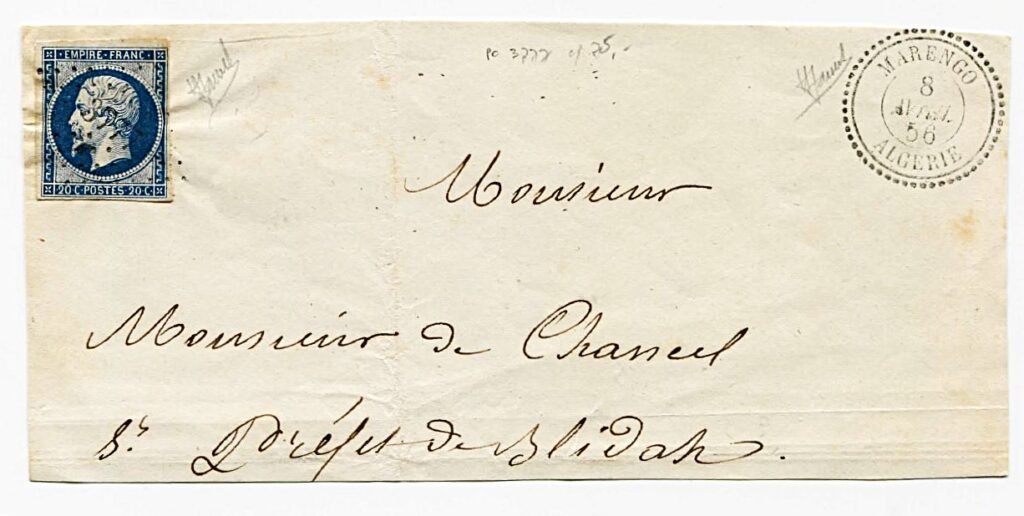 EMPIRE·FRANC·
20 C·POSTES·20 C·
PO 3772
MARENGO
8
AVRIL
56
ALGERIE
Monsieur
Monsieur de Chancel
S.r Préfet de Blidah.